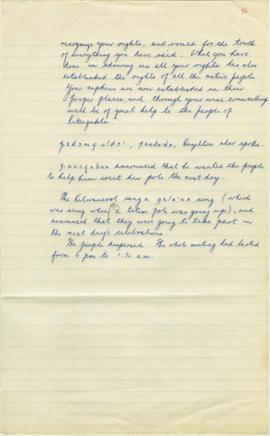 recognize your rights, and vouch for the truth
of everything you have said. What you have
done in showing us all your rights has also
established the rights of all the native people.
Your nephews are now established in their
proper places, and through your wise counselling
will be of great help to the people of
Kitsegukla.
also spoke.
announced that he wanted the people
to help him erect his pole the next day.
The Kitwancool sang a song (which
was sung when a totem pole was going up), and
announced that they were going to take part in
the next day's celebrations.
The people dispersed. The whole meeting had lasted
from 6 pm to 1:30 a.m.